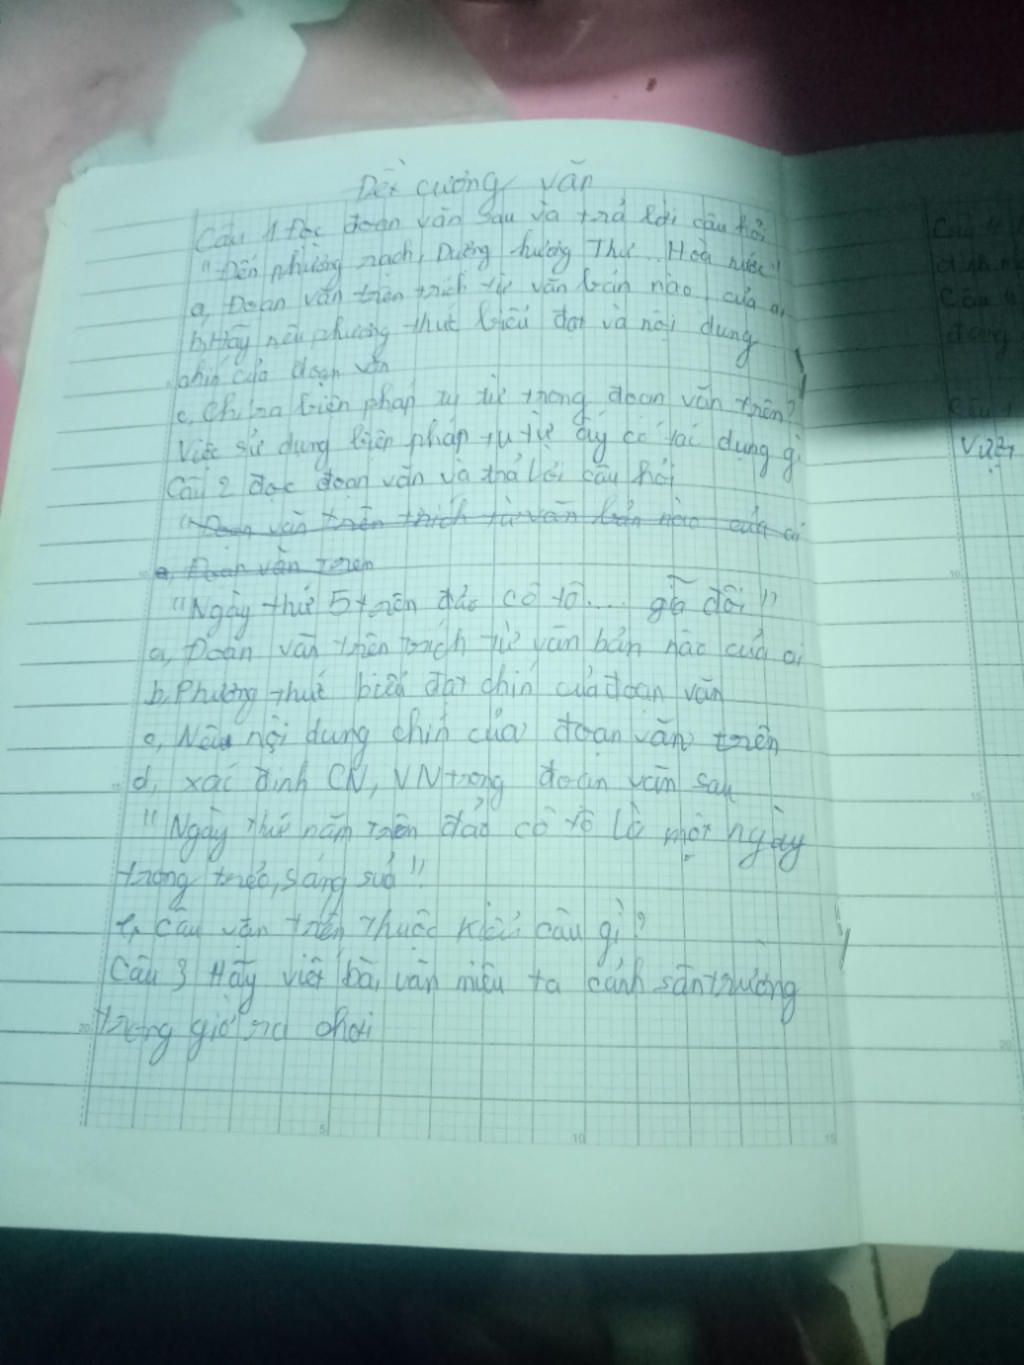 Đề cương văn
Câu 1 Đọc đoạn văn sau và trả lời câu hỏi
"Đến phường rạch, Dượng hương Thư... Hoà nước"
a, Đoạn văn trên trích từ văn bản nào, của ai
b, Hãy nêu phương thức biểu đạt và nội dung
chín của đoạn văn
c, Chỉ ra biện pháp tu từ trong đoạn văn trên?
Việc sử dụng biện pháp tu từ ấy có tác dụng gì
Câu 2 đọc đoạn văn và trả lời câu hỏi
"Đoạn văn trên trích từ văn bản nào của ai
a, Đoạn văn trên
"Ngày thứ 5 trên đảo cô tô.... giã đôi"
a, Đoạn văn trên trích từ văn bản nào của ai
b, Phương thức biểu đạt chín của đoạn văn
c, Nêu nội dung chín của đoạn văn trên
d, xác định CN, VN trong đoạn văn sau
"Ngày thứ năm trên đảo cô tô là một ngày
trong trẻo, sáng sủa"
e, câu văn trên thuộc kiểu câu gì?
Câu 3 Hãy viết bài văn miêu tả cảnh sân trường
trong giờ ra chơi
Câu 4
Câu
Câu
vượt